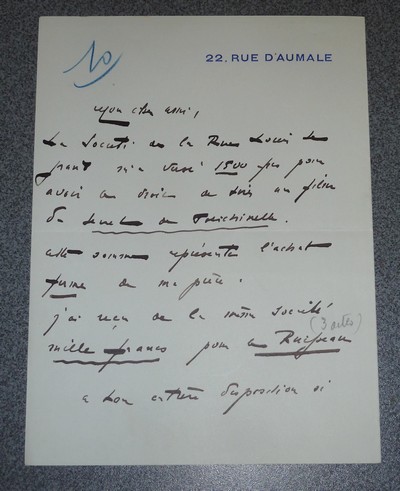 10
22, RUE D'AUMALE
mon cher ami,
La Société de la Rue Louis le
grand m'a versé 1500 frs pour
avoir le droit de un film
du Secret de Polichinelle.
cette somme représente l'achat
ferme de ma pièce.
j'ai reçu de la même société
(3 actes)
mille francs pour
a ton entière disposition si